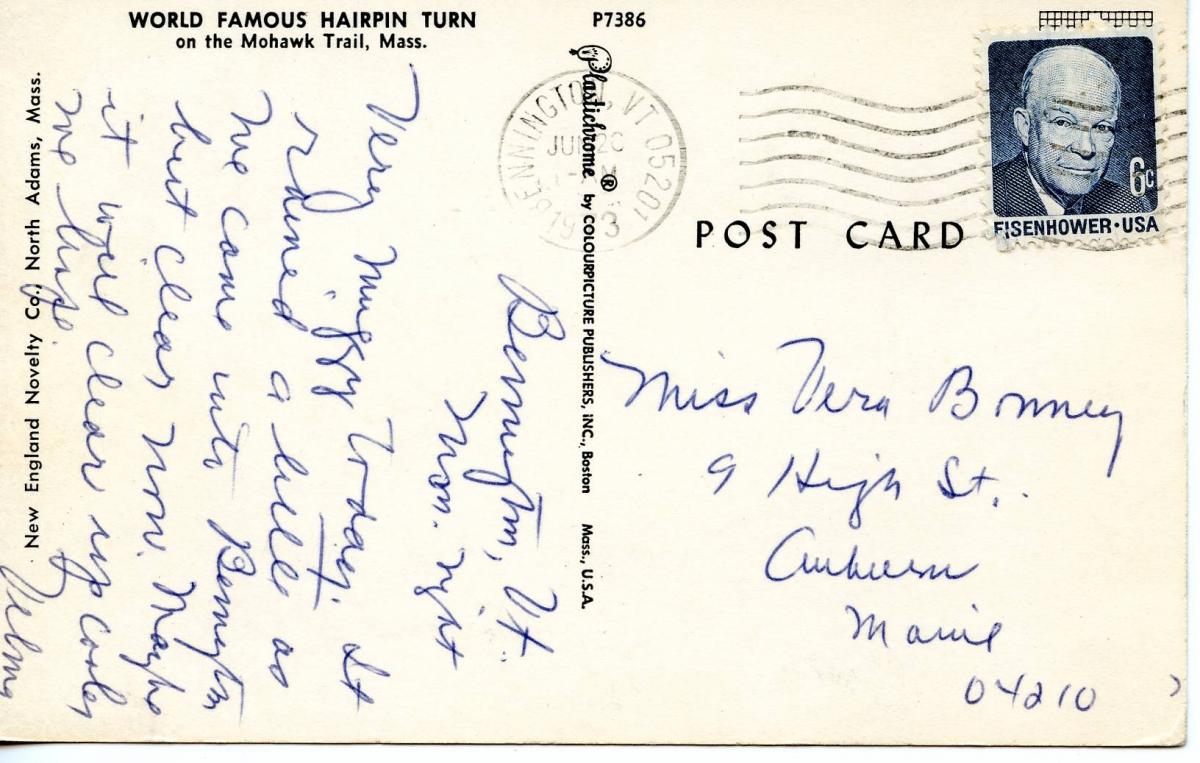 WORLD FAMOUS HAIRPIN TURN
on the Mohawk Trail, Mass.
P7386
New England Novelty Co., North Adams, Mass.
Bennington, Vt.
Mon. night
Very muggy today. It
rained a little as
we came into Bennington
but clear now. Maybe
it will clear up cooler
we hope.
Velma
Plastichrome ® by COLOURPICTURE PUBLISHERS, INC., Boston Mass., U.S.A.
BENNINGTON, VT 05201
POST CARD
6c
EISENHOWER·USA
Miss Vera Bonney
9 High St.
Auburn
Maine
04210